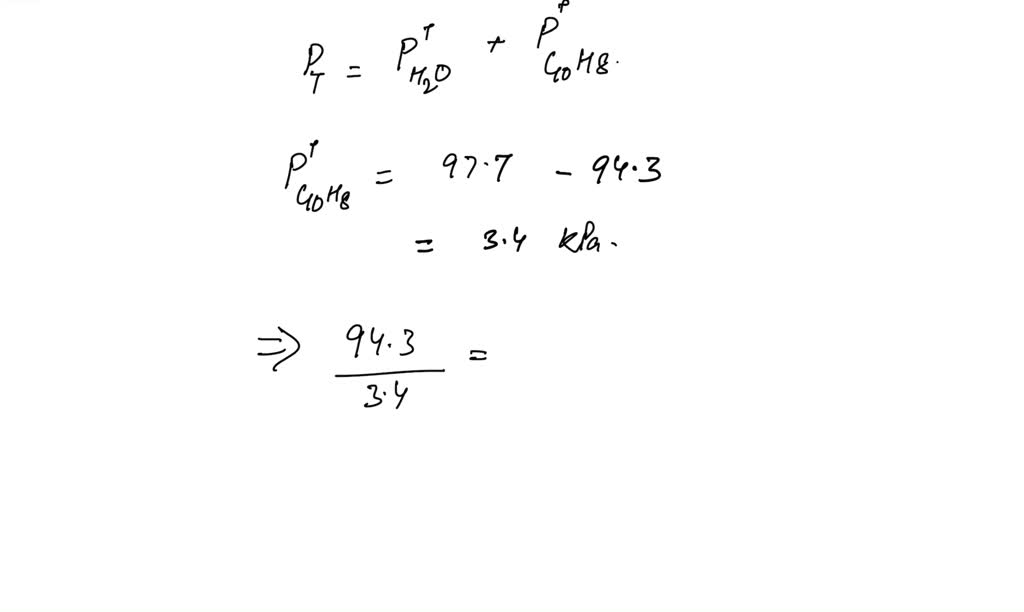 P_T = P^T_{H2O} + P^P_{C10H8}.
P^T_{C10H8} = 97.7 - 94.3
= 3.4 kPa.
⇒ 94.3/3.4 =